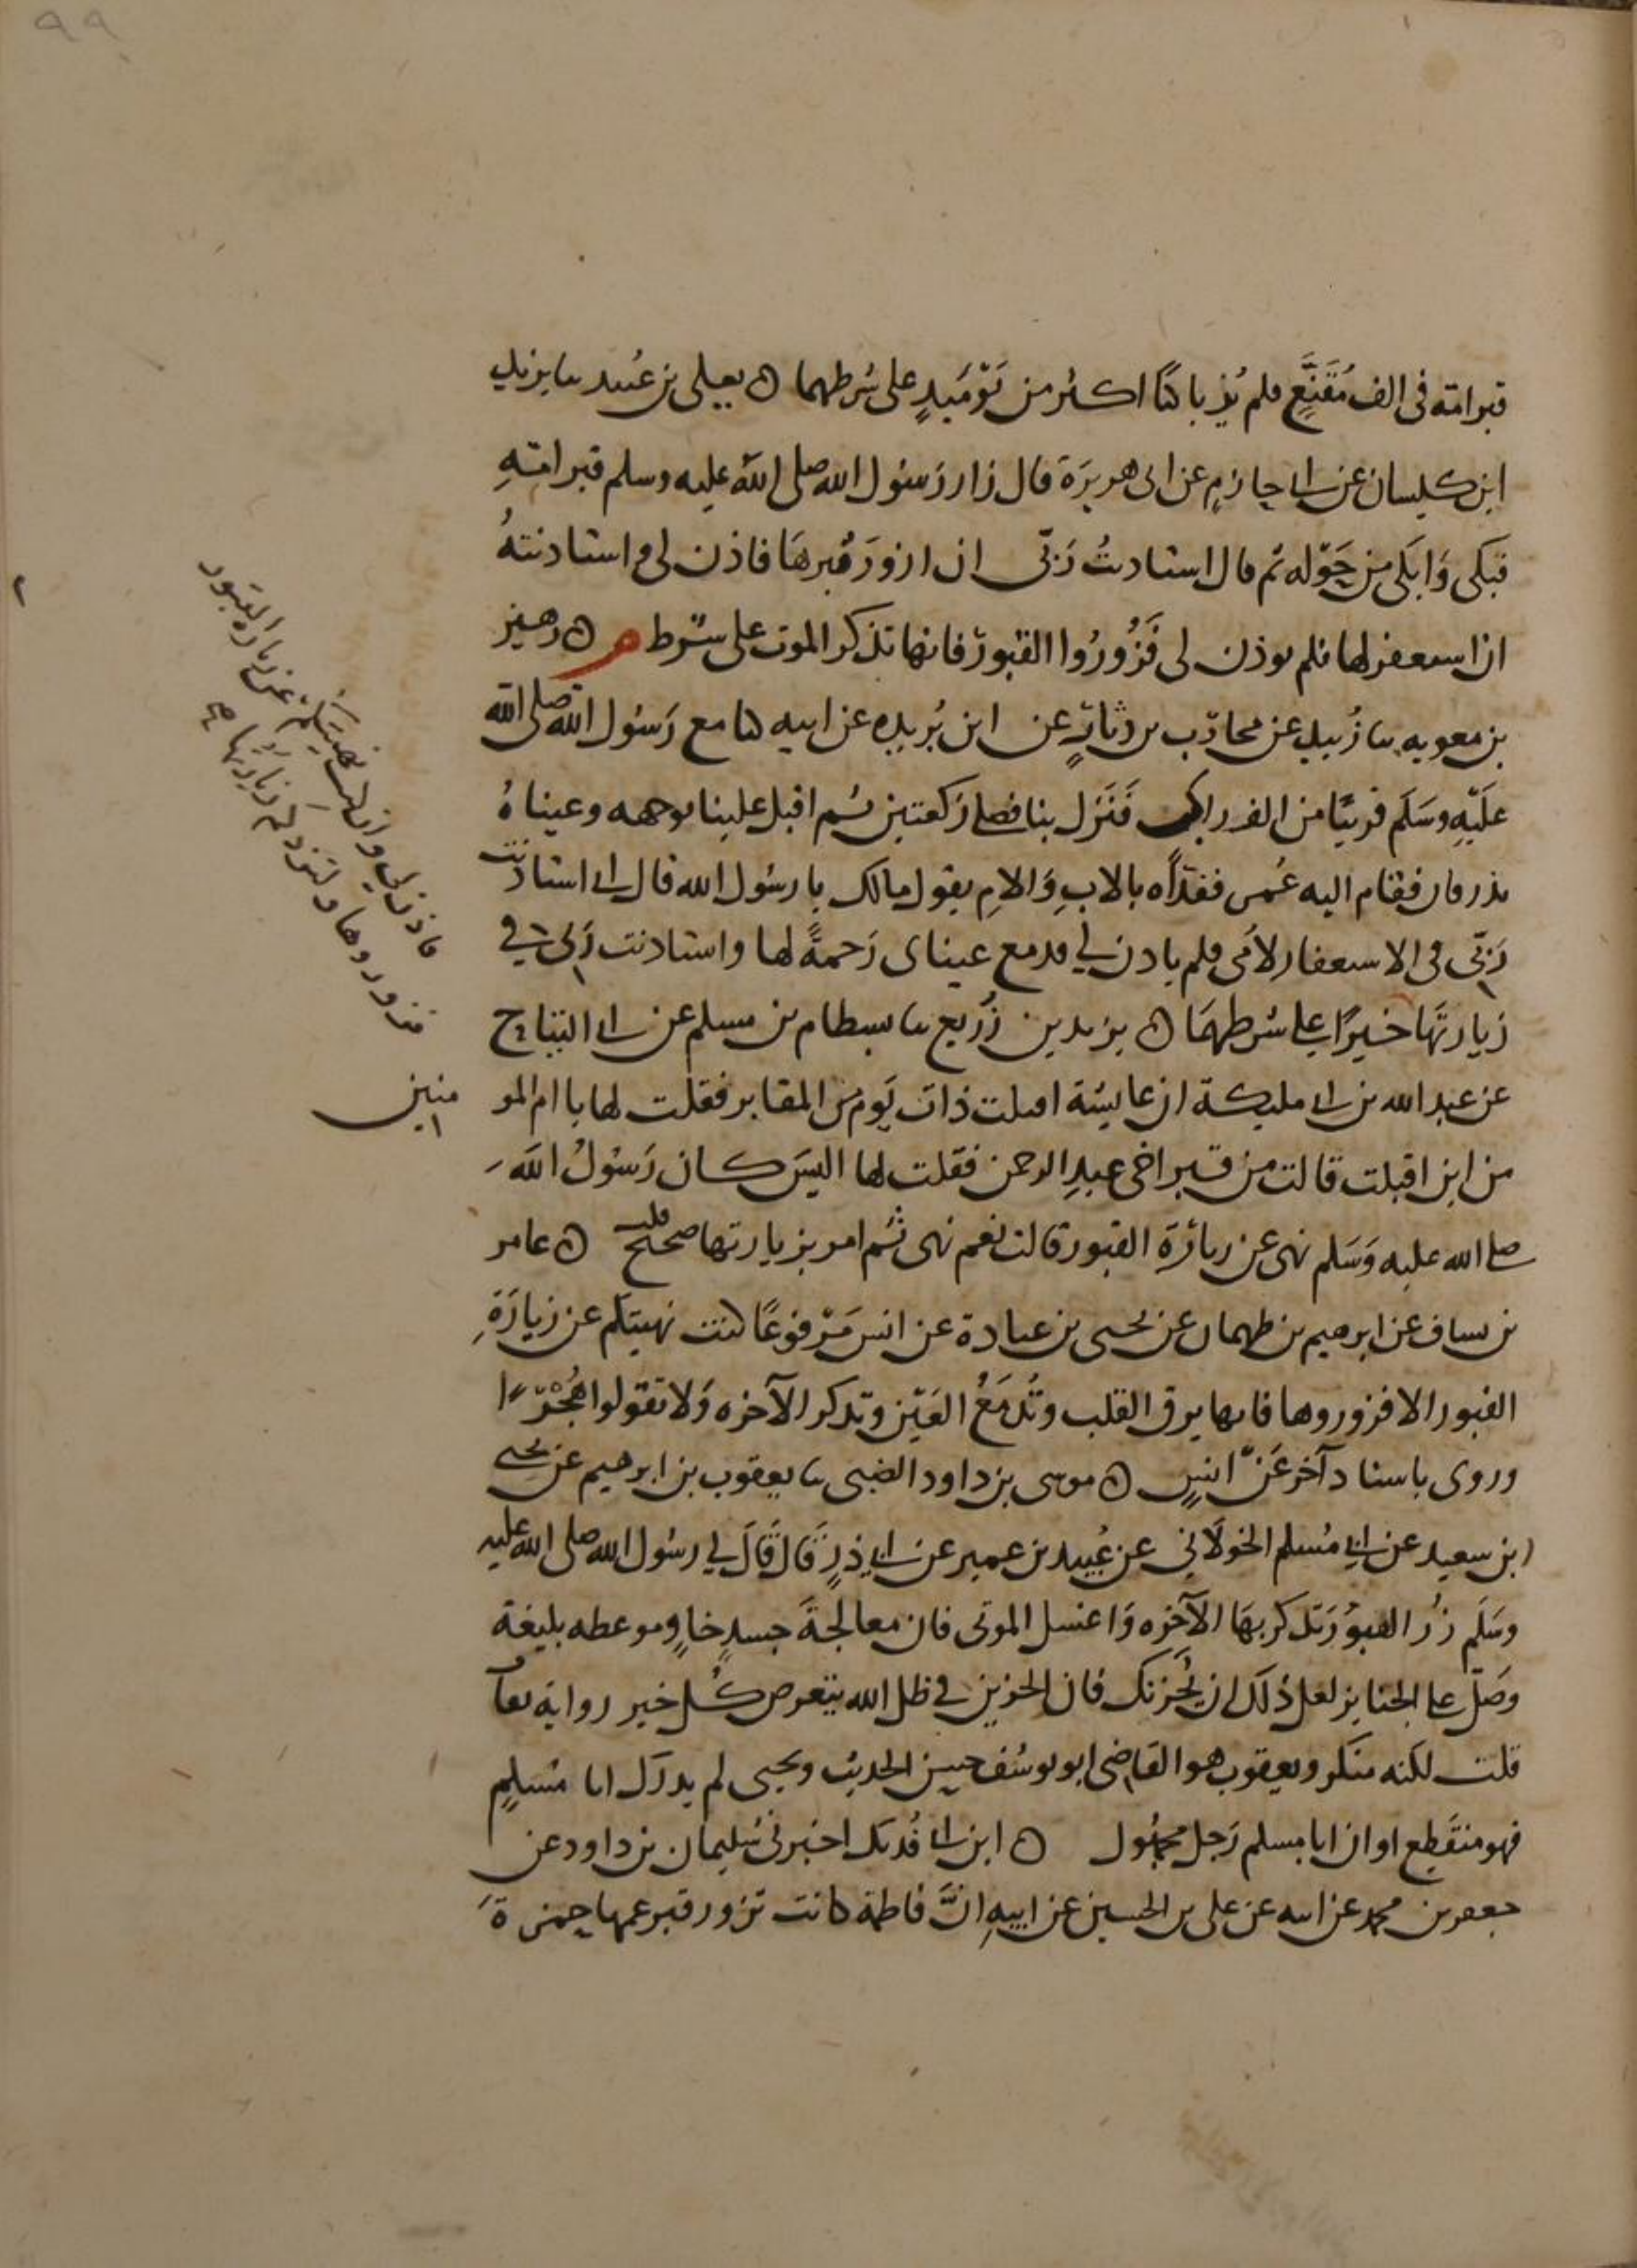 قبر امه فى الف مُقَنَّعٍ فلم يُرَ باكيًا اكثر من يَوْمَيِذٍ على شرطهما ه يعلى بن عُبيد ثنا يزيد
ابن كيسان عن ابى حازمٍ عن ابى هريرَة قال زار رَسُول الله صلى الله عليه وسلم قبر امّهِ
فبَكى وَابكَى من حَوْله ثم قال استاذنتُ رَبّى ان ازورَ قبرهَا فاذن لى واستاذنتهُ
ان استغفر لها فلم يوذن لى فَزُورُوا القبورَ فانها تذكر الموت على شرط م ه زهير
بن معويه ثنا زُبيد عن محارب بن دثارٍ عن ابن بُريده عن ابيه كنا مع رَسُول الله صلى الله
علَيْهِ وسَلم قريبًا من الف راكب فَنَزل بنا فصلى رَكعتين ثم اقبل علينا بوجهه وعيناهُ
تذرفان فقام اليه عُمر ففدَاه بالابِ وَالامِ يقول مالك يا رسُول الله قال انى استاذنت
رَبّى فى الاستغفار لامى فلم ياذن لي فدمع عيناى رَحمةً لها واستاذنت ربى في
فاذن لي وانى كنت نهيتكم عن زياره القبور
فزوروها وليزدكم زيارتها
زيارتهَا خيرًا على شرطهمَا ه يزيد بن زُريع ثنا بسطام بن مسلم عن ابى التياح
عن عبد الله بن ابى مليكة ان عايشة اقبلت ذات يَوم من المقابر فقلت لها يا ام المو
منين
من اين اقبلت قالت من قبر اخى عبدِ الرحمن فقلت لها اليسَ كان رَسُولُ الله
صلى الله عليه وَسَلم نهى عن زيارَة القبور قالت نعم نهى ثم امر بزيارتها قلت صحيح ه عامر
بن يساف عن ابرهيم بن طهمان عن يحيى بن عبادة عن انس مَرْفوعًا كنت نهيتكم عن زيارَةِ
القبور الا فزوروها فانها يرق القلب وتُدمَعُ العَيْن وتذكر الآخره وَلا تقولوا هُجْرًا
وروى باسناد آخر عَن انسٍ ه موسى بن داود الضبى ثنا يعقوب بن ابرهيم عن يحيى
بن سعيد عن ابى مُسلم الخولَاني عن عُبيد بن عمير عن ابى ذرٍ قال قَالَ لي رسُول الله صلى الله عليه
وسَلم زُر القبوُرَ تذكر بهَا الآخره وَاغسل الموتى فان معالجةَ جسدٍ خاوٍ موعظه بليغة
وصَلّ على الجنايز لعل ذلك ان يُحزنك فان الحزين في ظل الله يتعرض كُل خير رواية ثقات
قلت لكنه منكر ويعقوب هو القاضى ابو يوسُف حسن الحديث ويحيى لم يدرك ابا مُسْلمٍ
فهو منقَطِع او ان ابا مسلم رَجل مجهُول ه ابن ابى فُديك اخبرنى سُليمان بن داود عن
جعفر بن محمد عن ابيه عن على بن الحسين عن ابيهِ انَّ فاطمة كانت تزور قبر عمها حمزةَ